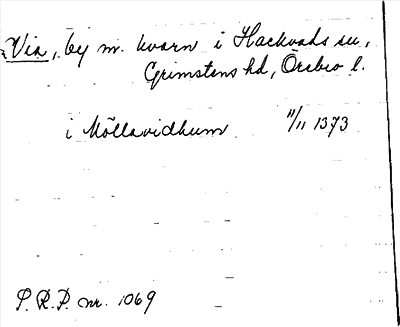 Via, by m. kvarn i Hackvads sn,
Grimstens hd, Örebro l.
i Möllavidhum 11/11 1373
S.R.P. nr. 1069